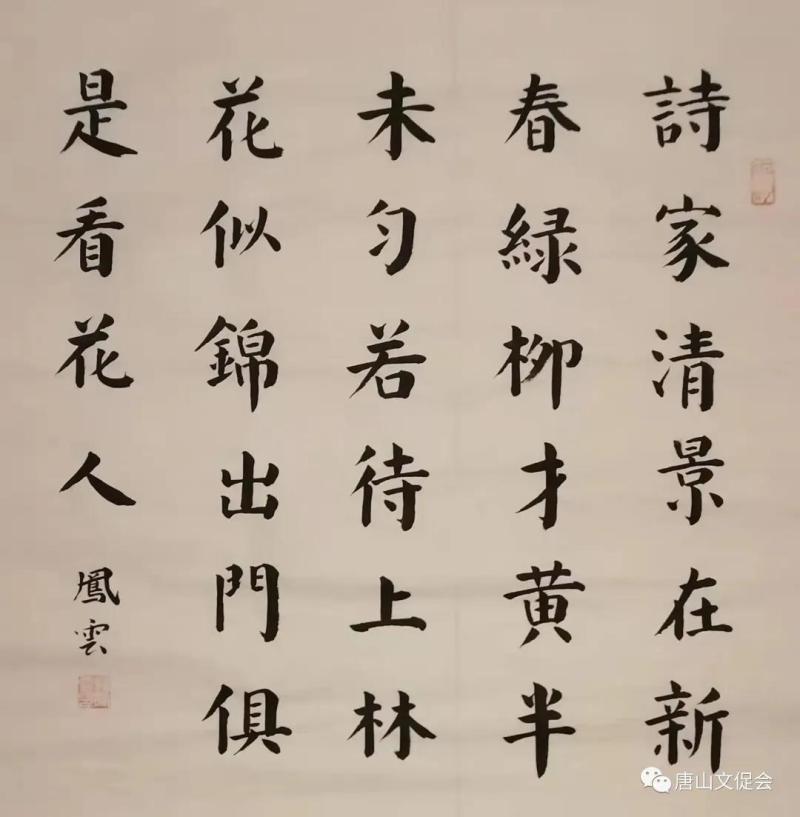 詩家清景在新
春綠柳才黃半
未勻若待上林
花似錦出門俱
是看花人
鳳雲
唐山文促会